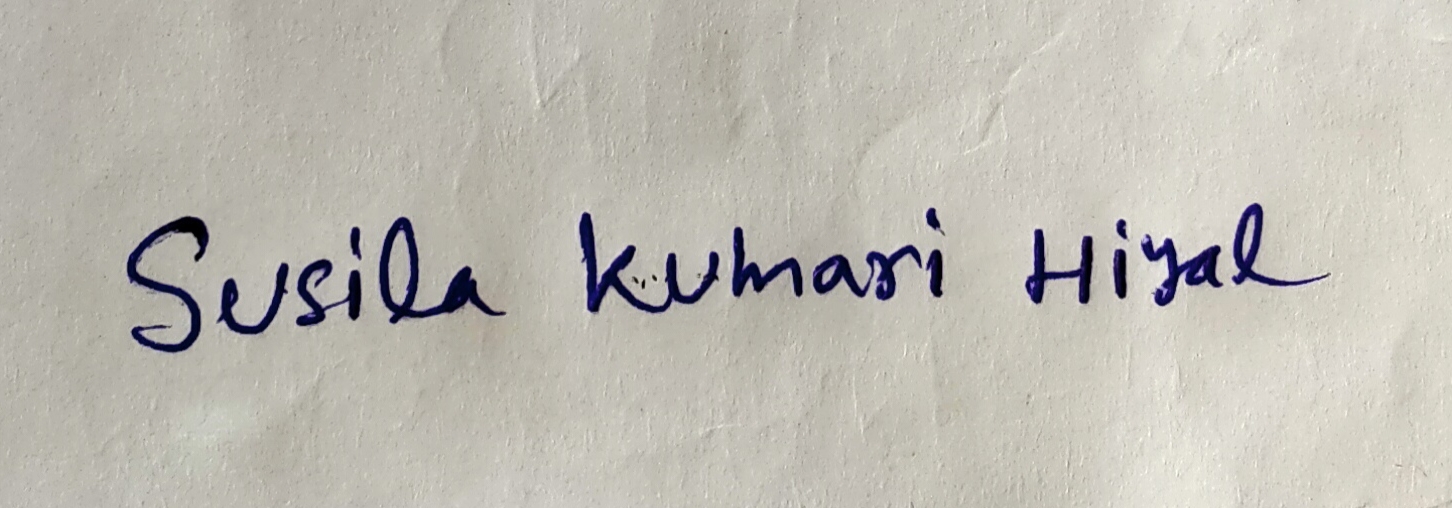 Susila Kumari Hiyal